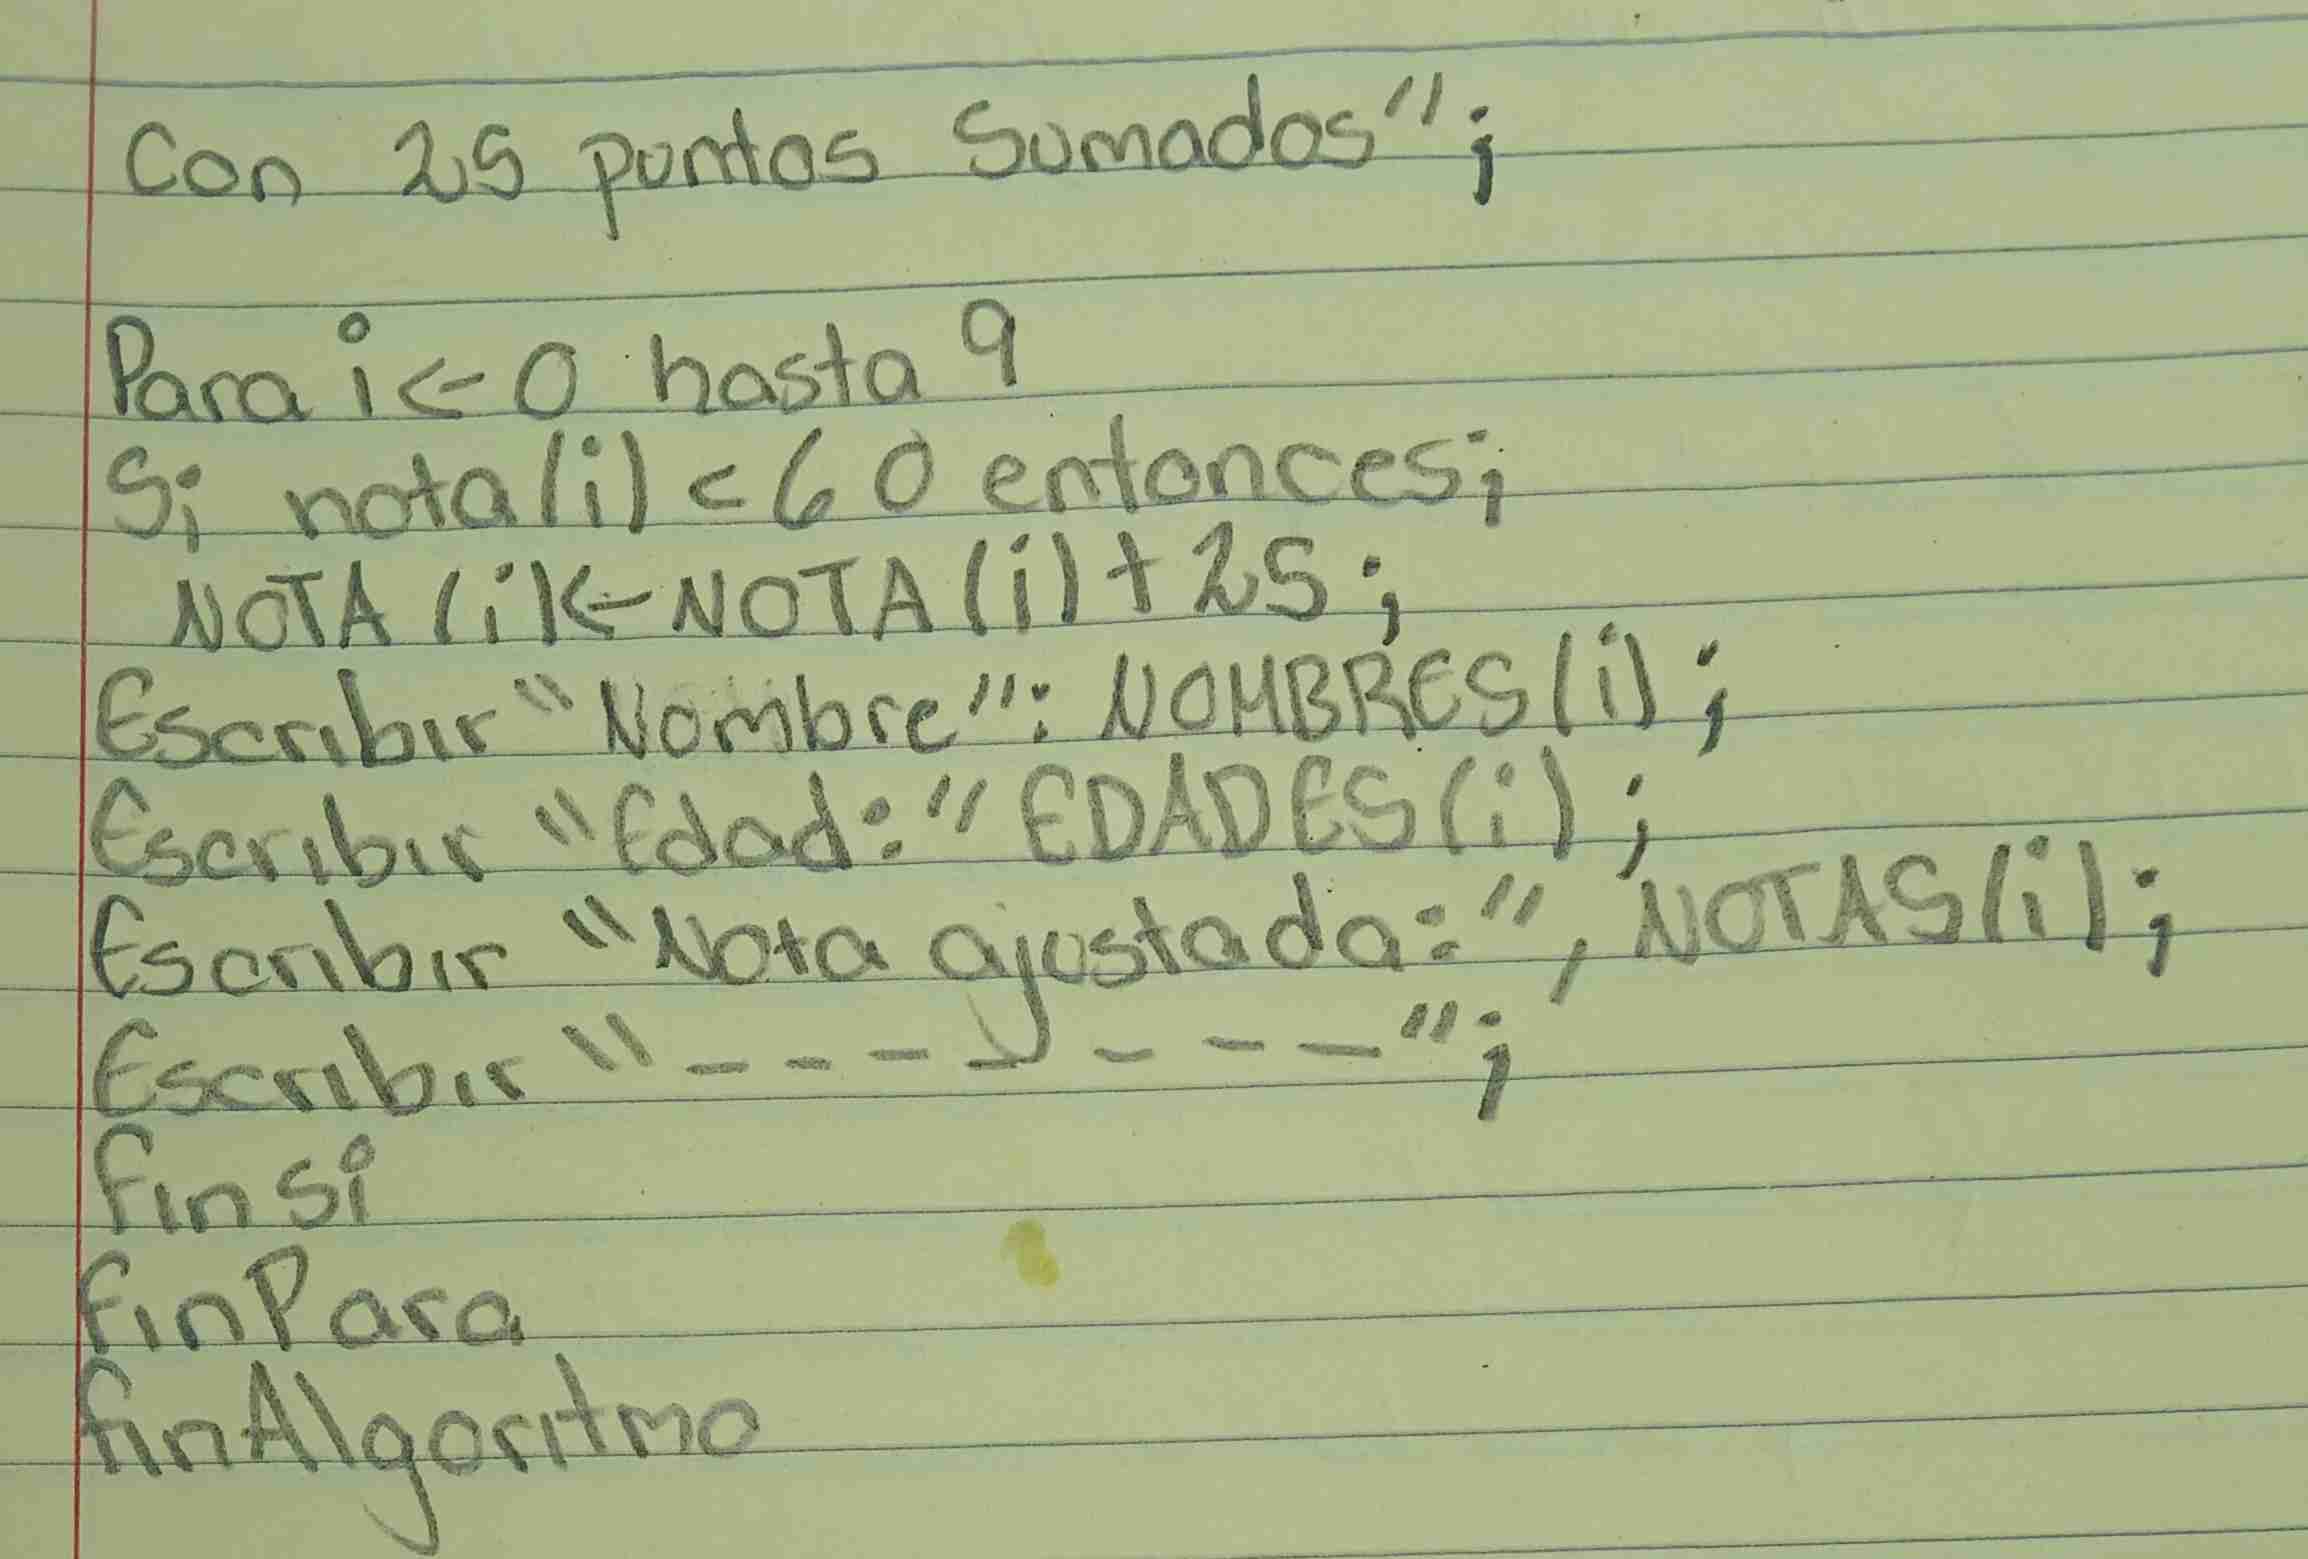 Con 25 puntos Sumados";
Para i<-0 hasta 9
Si nota(i) <60 entonces;
NOTA (i)<-NOTA(i)+25;
Escribir "Nombre": NOMBRES(i);
Escribir "Edad:" EDADES(i);
Escribir "Nota ajustada:", NOTAS(i);
Escribir "-------";
Finsi
FinPara
FinAlgoritmo